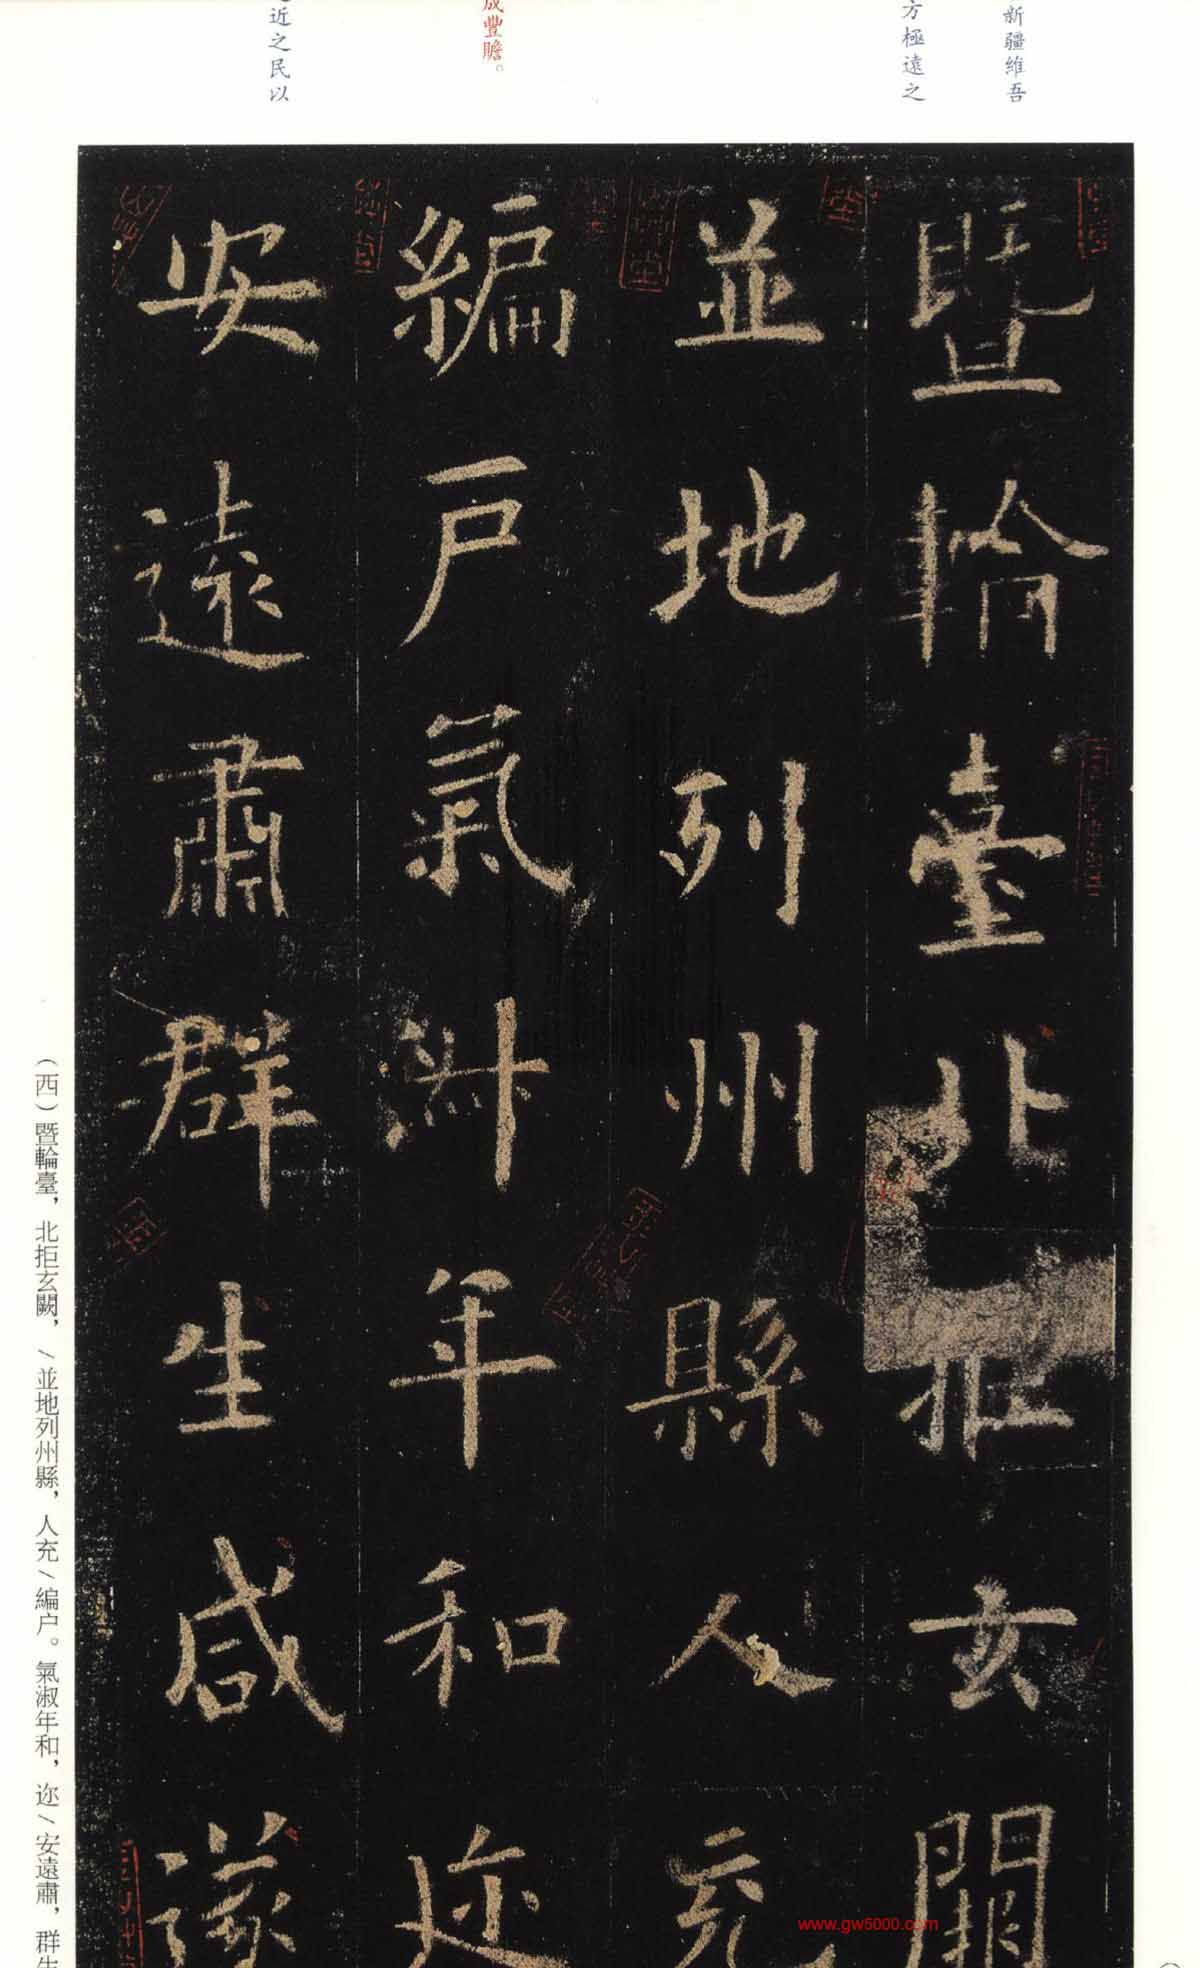 新疆維吾
方極遠之
成豐贍。
近之民以
暨輪臺北拒玄闕
並地列州縣人充
編戶氣淑年和迩
安遠肅群生咸遂
(西)暨輪臺，北拒玄闕，\並地列州縣，人充\編户。氣淑年和，迩\安遠肅，群生
www.gw5000.com